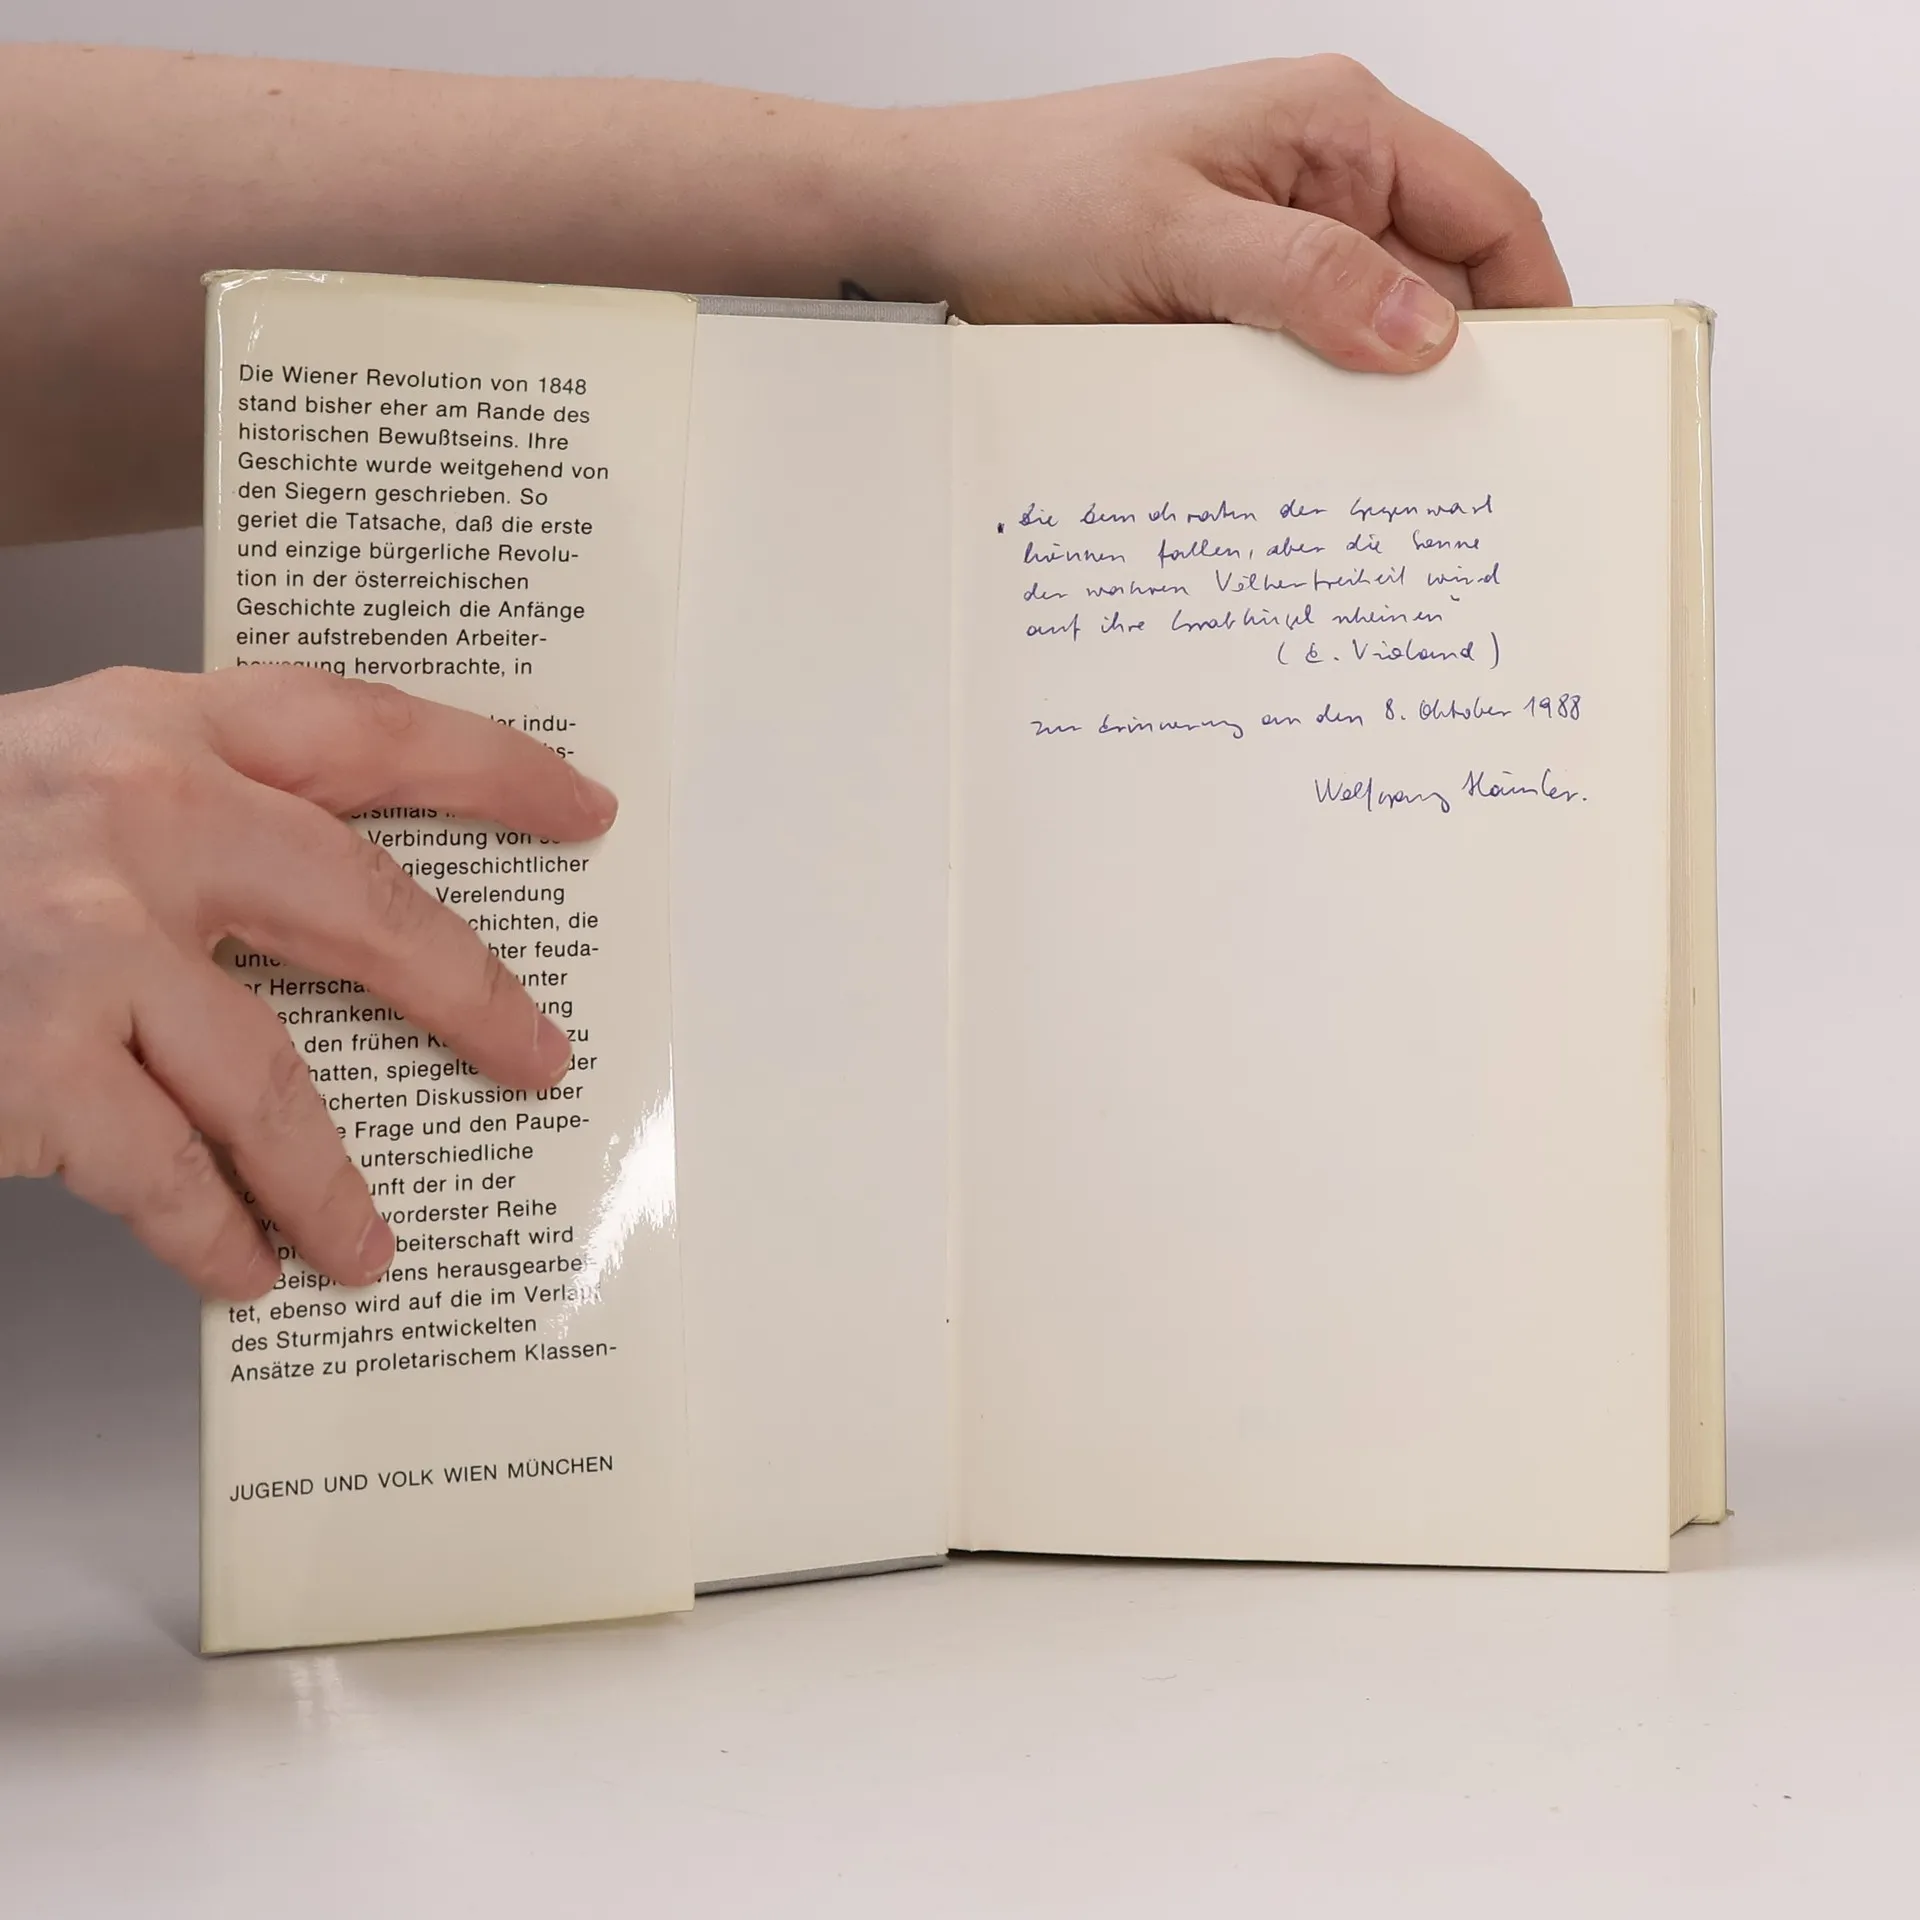 Die Wiener Revolution von 1848
stand bisher eher am Rande des
historischen Bewußtseins. Ihre
Geschichte wurde weitgehend von
den Siegern geschrieben. So
geriet die Tatsache, daß die erste
und einzige bürgerliche Revolu-
tion in der österreichischen
Geschichte zugleich die Anfänge
einer aufstrebenden Arbeiter-
hervorbrachte, in
indu-
Verbindung von
giegeschichtlicher
Verelendung
chichten, die
feuda-
unter
Herrscha
schranken
ung
den frühen
zu
hatten, spiegelte
der
ächerten Diskussion über
Frage und den Paupe-
unterschiedliche
unft der in der
vorderster Reihe
beiterschaft wird
Beisp iens herausgearbei-
tet, ebenso wird auf die im Verlauf
des Sturmjahrs entwickelten
Ansätze zu proletarischem Klassen-
JUGEND UND VOLK WIEN MÜNCHEN
Die Demokraten der Gegenwart
können fallen, aber die Sonne
der wahren Völkerfreiheit wird
auf ihre Grabhügel scheinen"
(E. Violand)
zur Erinnerung an den 8. Oktober 1988
Wolfgang Häusler.